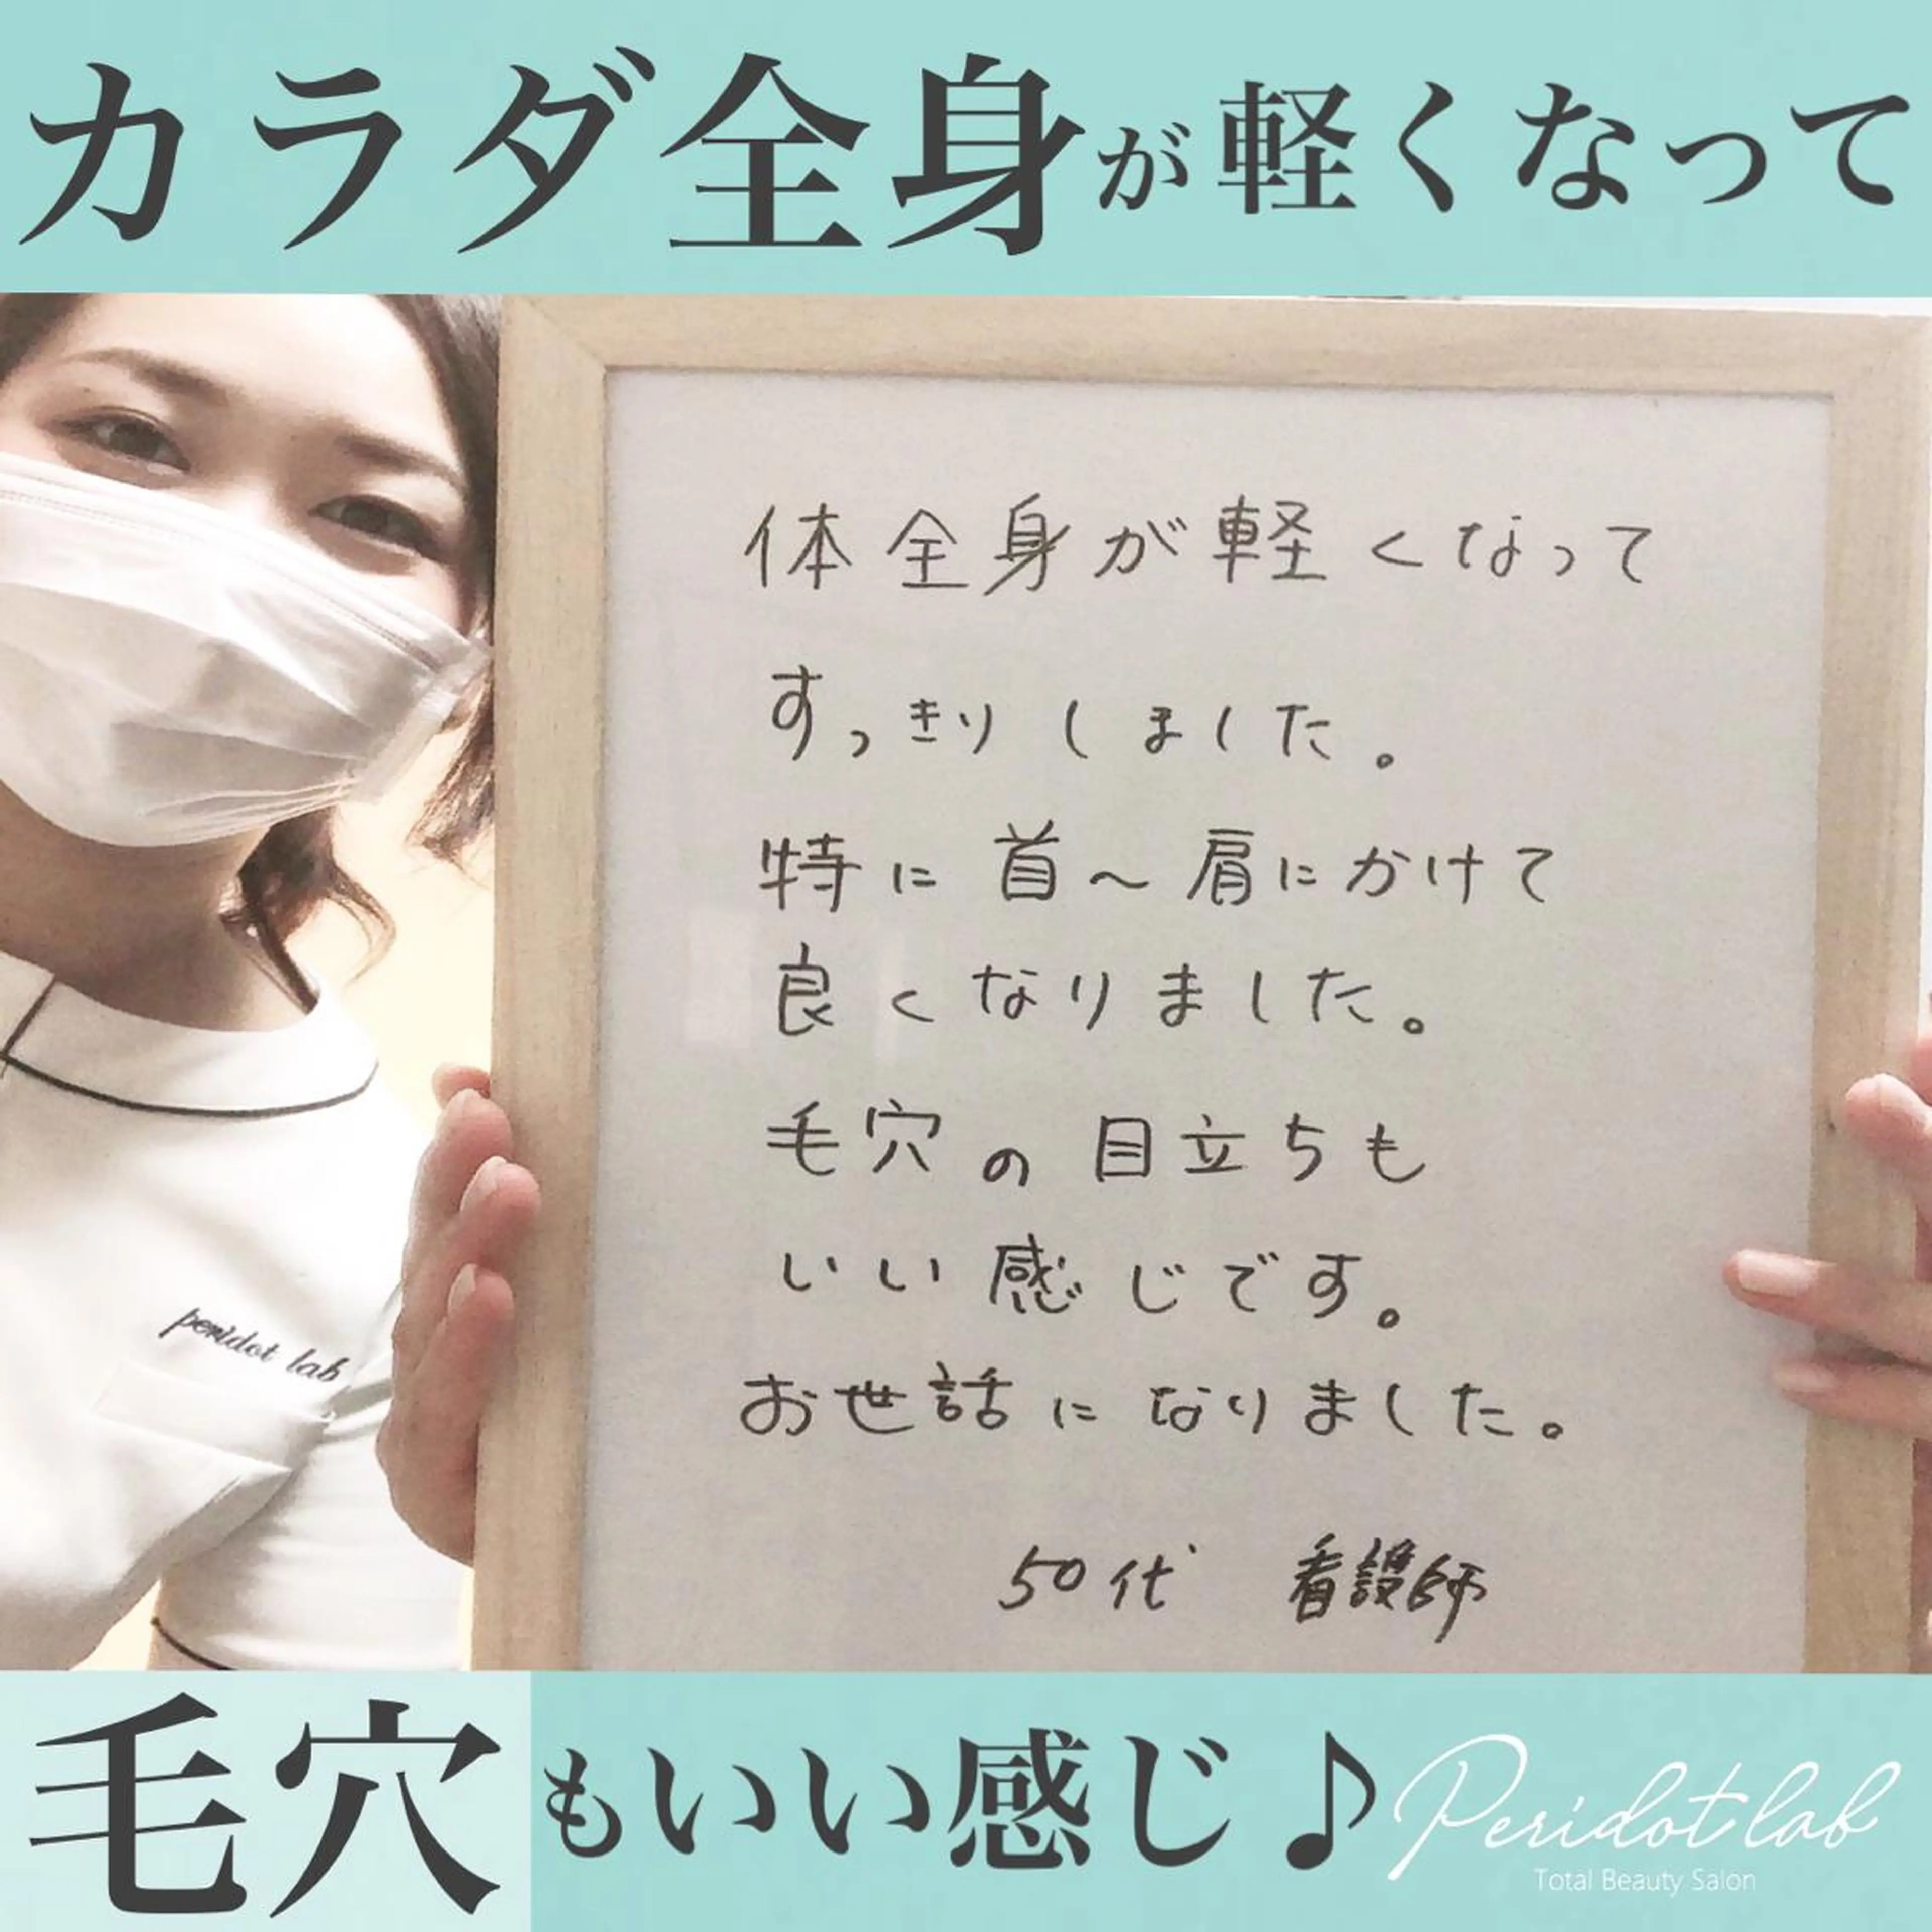 カラダ全身が軽くなって
体全身が軽くなって
すっきりしました。
特に首～肩にかけて
良くなりました。
毛穴の目立ちも
いい感じです。
お世話になりました。
50代 看護師
peridot lab
毛穴もいい感じ♪
Peridot lab
Total Beauty Salon